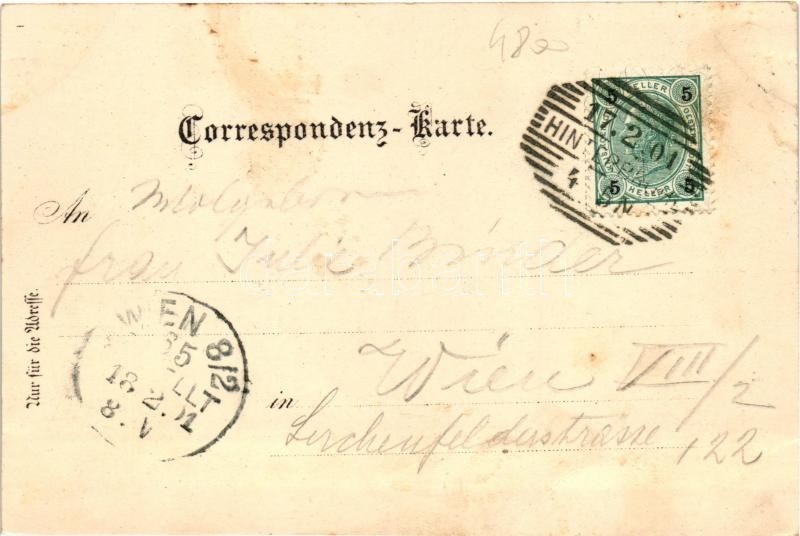 4800
5 HELLER 5
5 HELLER 5
17.2.01
HIN
4
Correspondenz-Karte.
An Wolgeborn
Frau Julie Binder
Nur für die Adresse.
WIEN 8/2
18.2.01
8.V
in Wien VIII/2
Lerchenfelderstrasse 122